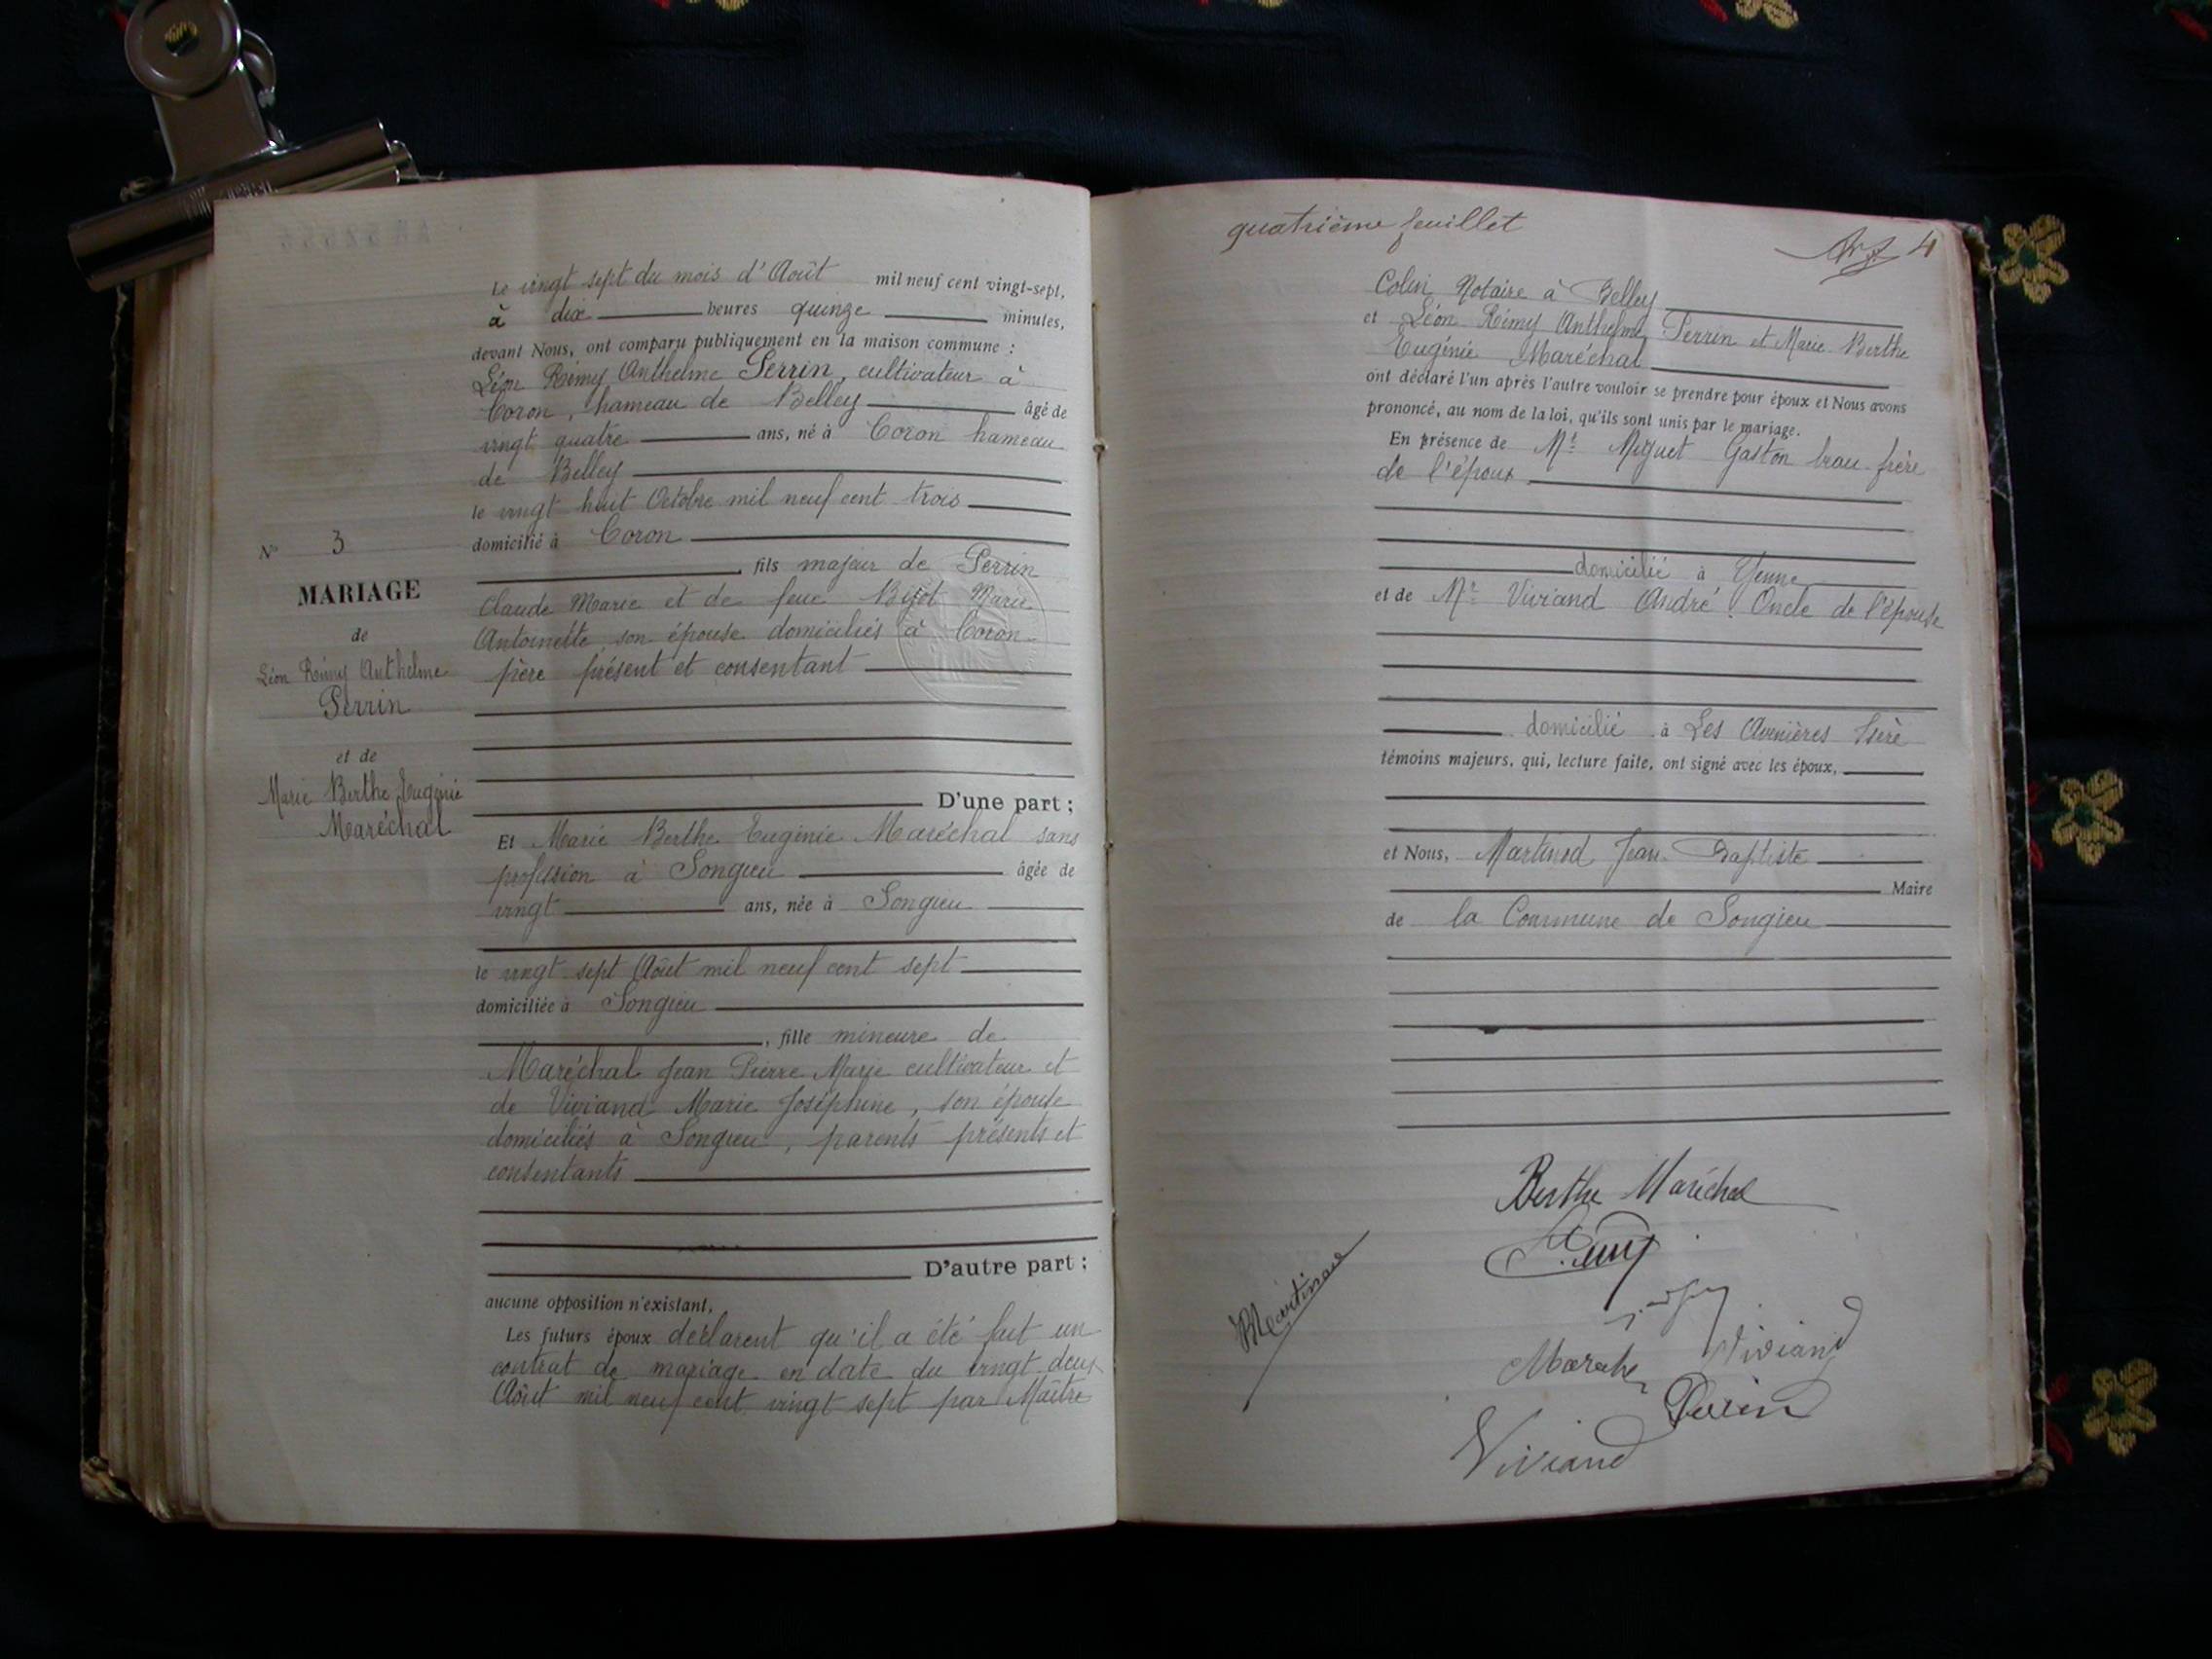 Le vingt sept du mois d'Août mil neuf cent vingt-sept,
à dix heures quinze minutes,
devant Nous, ont comparu publiquement en la maison commune :
Léon Rémy Anthelme Perrin, cultivateur à
Coron, hameau de Belley âgé de
vingt quatre ans, né à Coron hameau
de Belley
le vingt huit Octobre mil neuf cent trois
domicilié à Coron
, fils majeur de Perrin
Claude Marie et de feue Marie
Antoinette, son épouse domiciliés à Coron
père présent et consentant
D'une part ;
Et Marie Berthe Eugénie Maréchal sans
profession à Songieu âgée de
vingt ans, née à Songieu
le vingt sept Août mil neuf cent sept
domiciliée à Songieu
, fille mineure de
Maréchal Jean Pierre Marie cultivateur et
de Viviand Marie Joséphine, son épouse
domiciliés à Songieu, parents présents et
consentants
D'autre part ;
aucune opposition n'existant,
Les futurs époux déclarent qu'il a été fait un
contrat de mariage en date du vingt deux
Août mil neuf cent vingt sept par Maître
N° 3
MARIAGE
de
Léon Rémy Anthelme
Perrin
et de
Marie Berthe Eugénie
Maréchal
quatrième feuillet
4
Colin Notaire à Belley
et Léon Rémy Anthelme Perrin et Marie Berthe
Eugénie Maréchal
ont déclaré l'un après l'autre vouloir se prendre pour époux et Nous avons
prononcé, au nom de la loi, qu'ils sont unis par le mariage.
En présence de Mr Miguet Gaston beau-frère
de l'époux
domicilié à Yenne
et de Mr Viviand André Oncle de l'épouse
domicilié à Les Avenières Isère
témoins majeurs, qui, lecture faite, ont signé avec les époux,
et Nous, Martinod Jean-Baptiste
Maire
de la Commune de Songieu
Berthe Maréchal
Martinod
Viviand
Perrin
Viviand